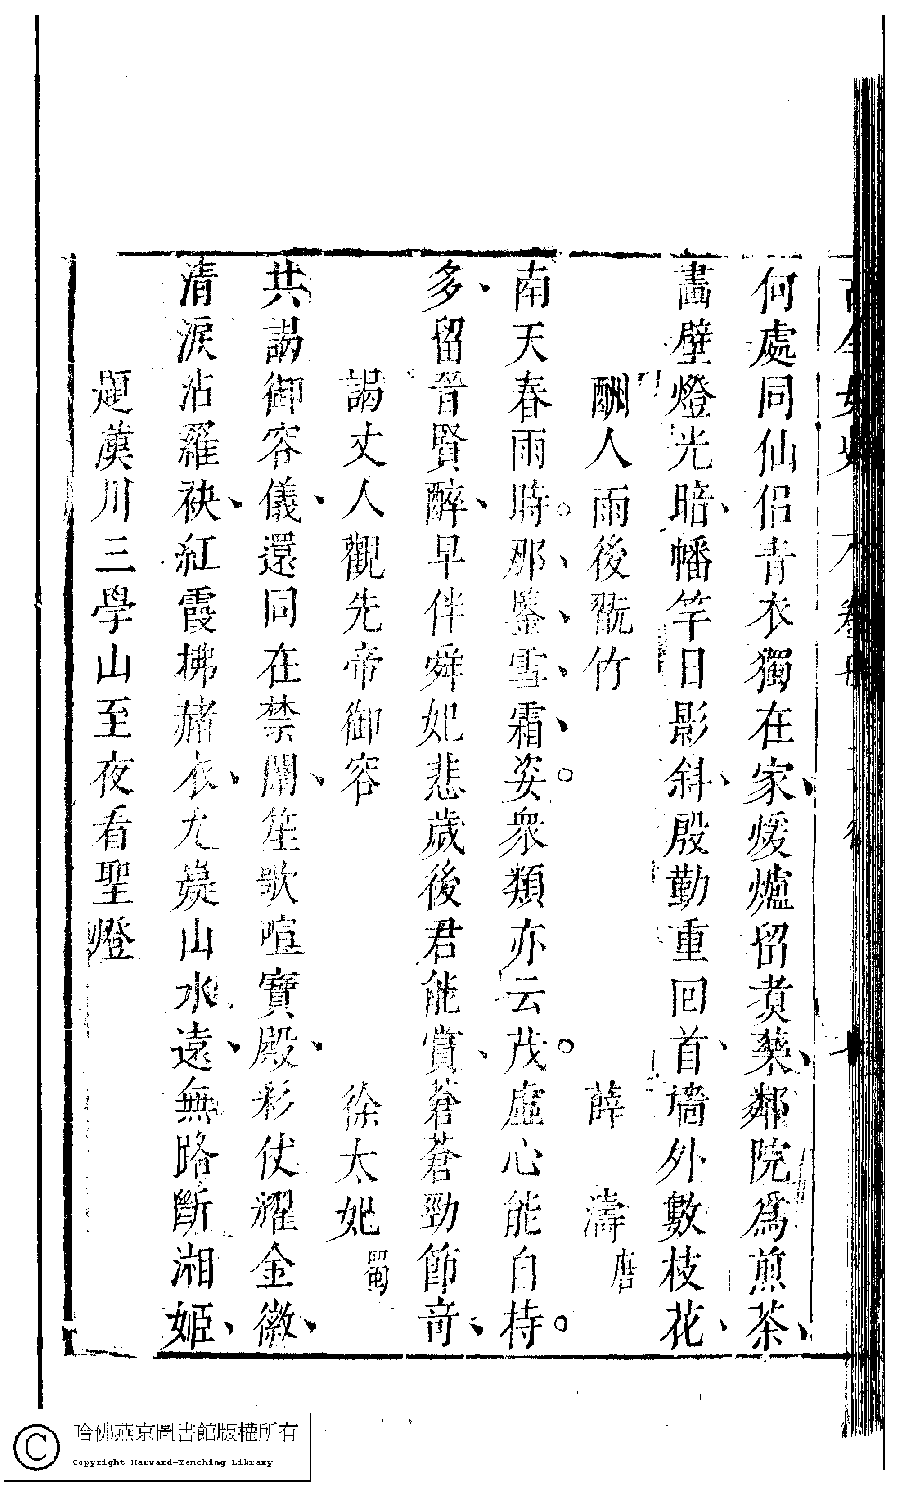 古今女史
何處同仙侶青衣獨在家煖爐留煑藥鄰院爲煎茶
畵壁燈光暗幡竿日影斜殷勤重回首墻外數枝花
酬人雨後翫竹 薛濤 唐
南天春雨時那鑒雪霜姿衆類亦云茂虛心能自持
多留晉賢醉早伴舜妃悲歲後君能賞蒼蒼勁節竒
謁丈人觀先帝御容 徐太妃 蜀
共謁御容儀還同在禁闈笙歌喧寶殿彩仗耀金徽
清淚沾羅袂紅霞拂繡衣九嶷山水遠無路斷湘姬
題漢川三學山至夜看聖燈
哈佛燕京圖書館版權所有
Copyright Harvard-Yenching Library